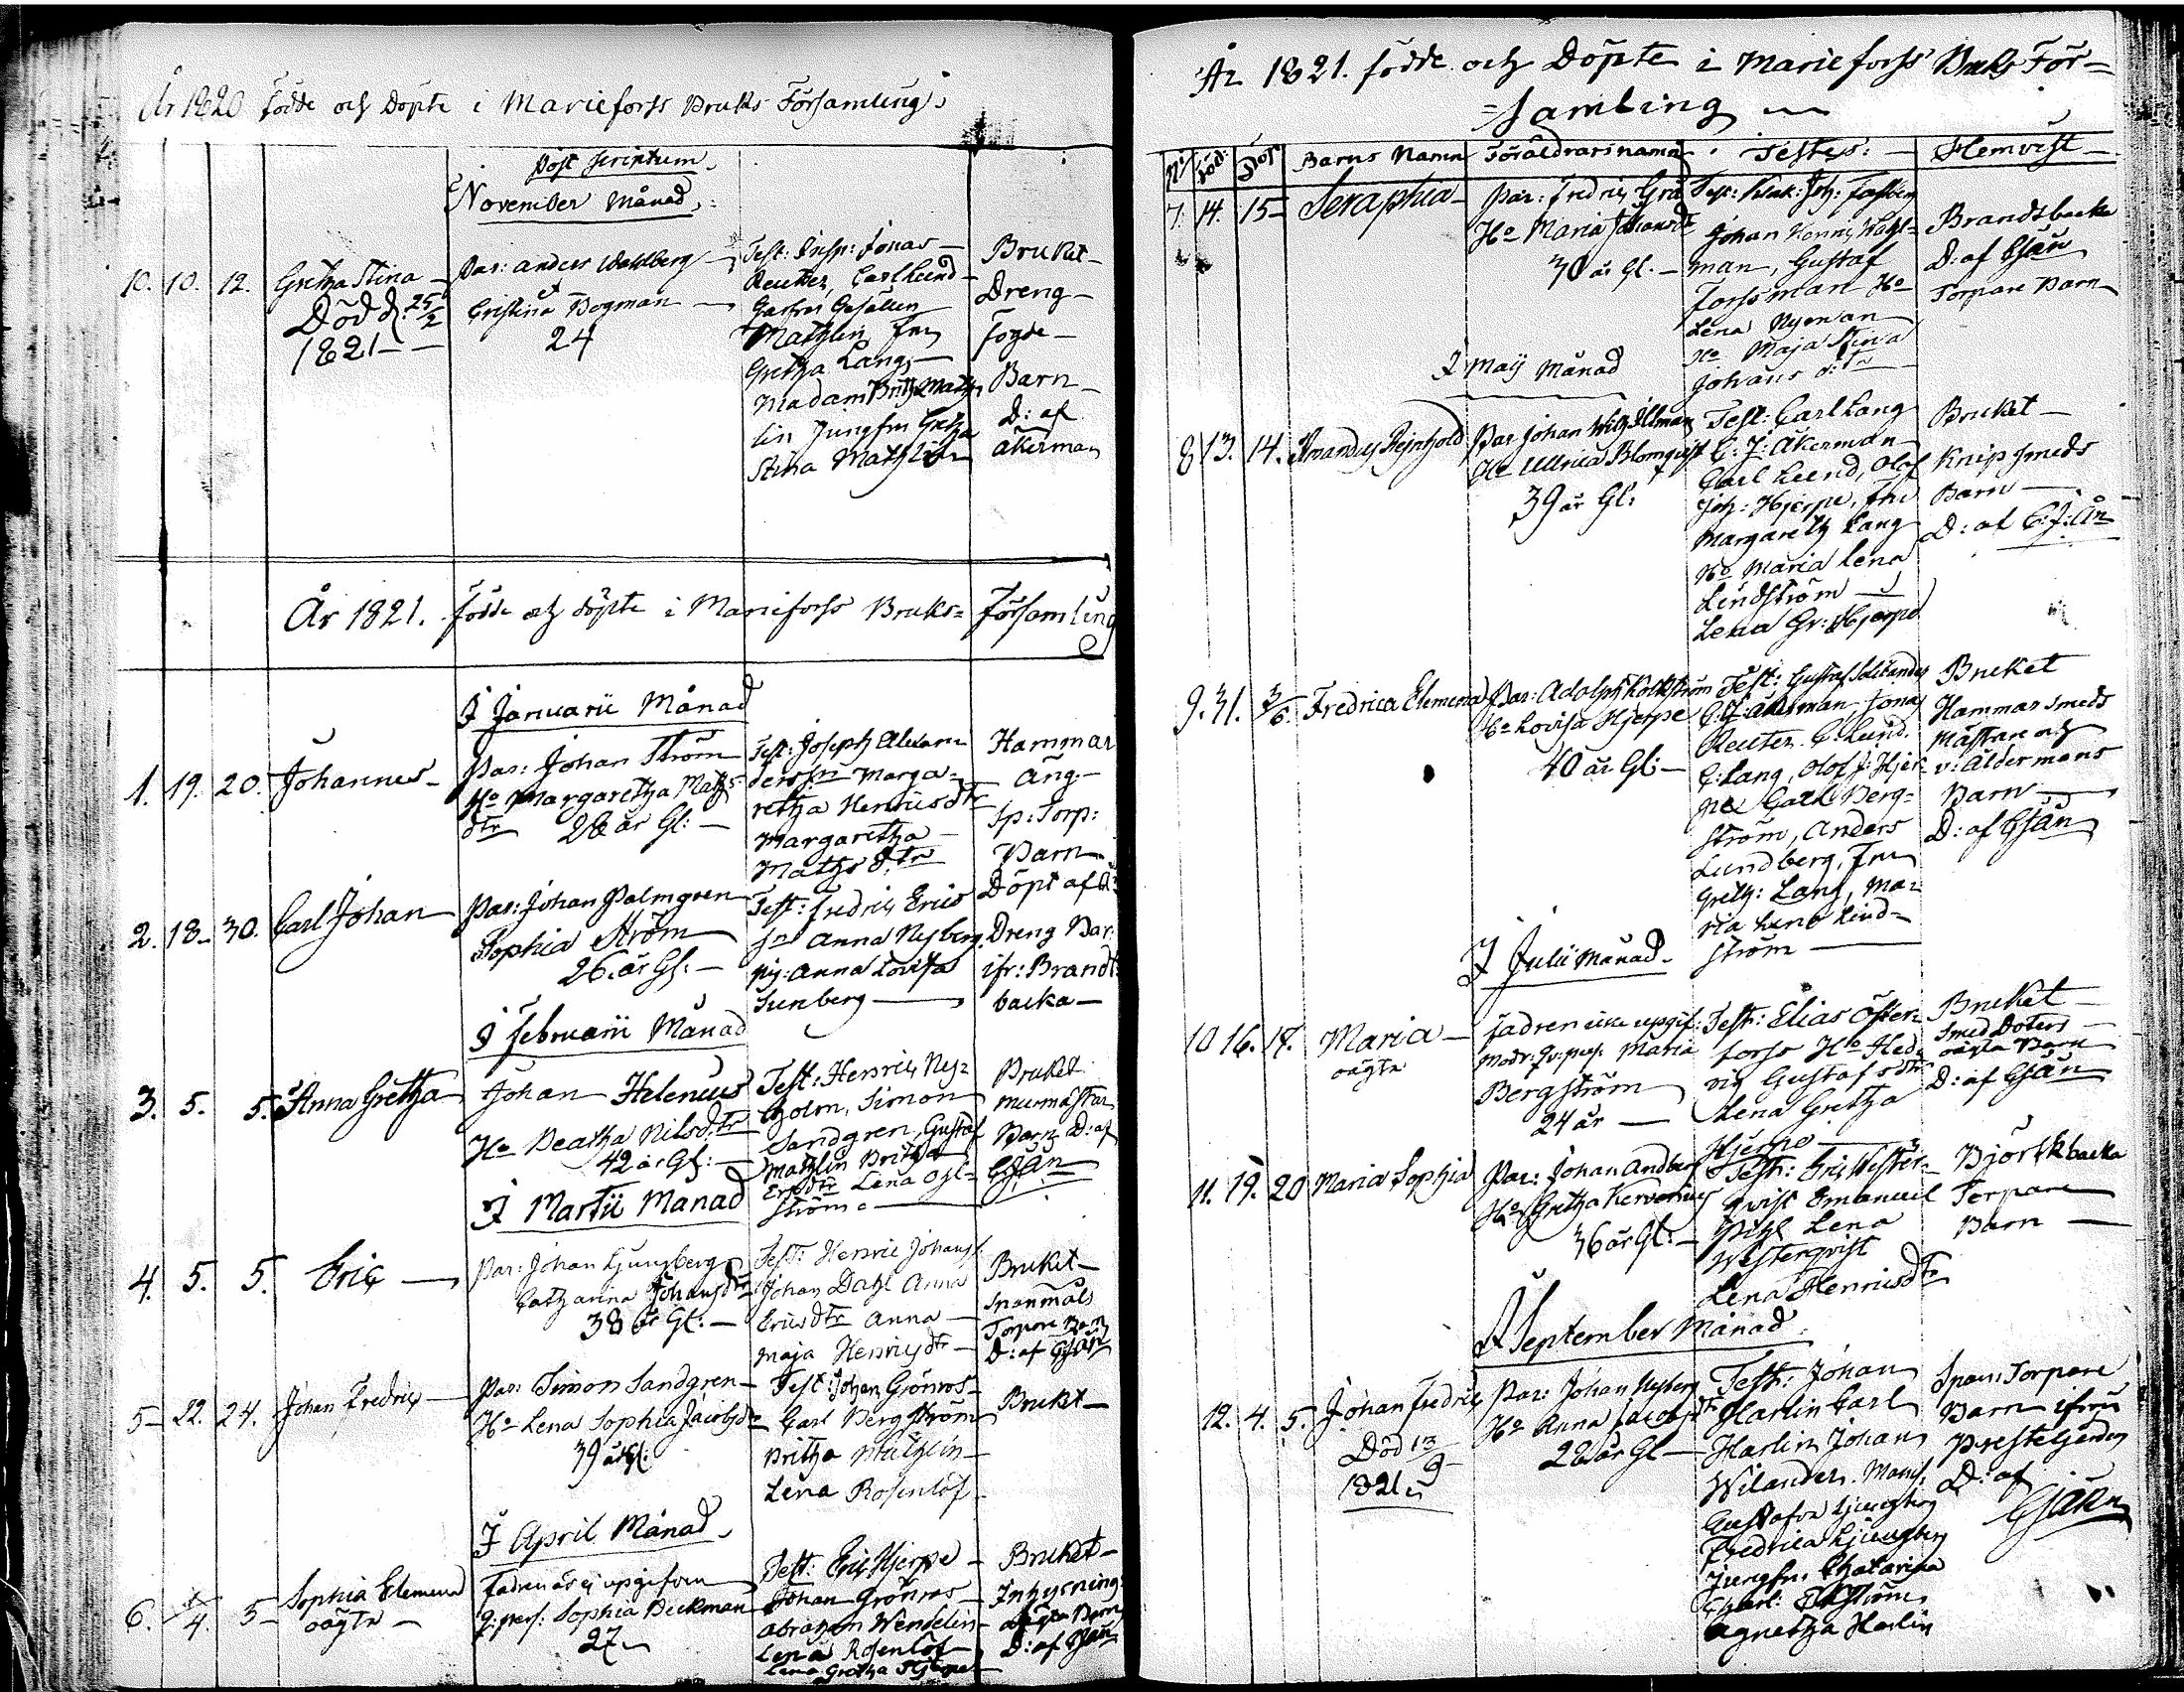 År 1820 födde och Döpte i Marieforss Bruks Församling
Post Scriptum
November Månad
10. 10. 12. Gretha Stina
Död d. 25/2
1821
Par: Anders Wahlberg
et
Cristina Bogman
24
Test: Insp: Jonas
Reuter, Carl Lund
Matzlin Fru
Gretha Lang
Madam Britha Matz
lin Jungfru Gretha
Stina Matzlin
Bruket
Dreng
fogde
Barn
D: af
åkerman
År 1821. födde och döpte i Marieforss Bruks= Församling
I Januarii Månad
1. 19. 20. Johannes
Par: Johan Ström
Ho Margaretha Maths
dtr 26 år Gl:
Test: Joseph Alexan
dersson Marga=
retha Henricsdtr
Margaretha
Maths dtr
Hammar
äng.
Sp: Torp:
Barn
Döpt af
2. 18. 30. Carl Johan
Par: Johan Palmgren
Sophia Ström
26. år Gl.
Test: Fredric Erics
sn Anna Nyberg
pig: Anna Lovisa
Sunberg
Dreng Bar:
ifr: Brandt
backa
I Februarii Månad
3. 5. 5. Anna Gretha
Johan Helenius
Ho Beatha Nilsdtr
42 år Gl:
Test: Henric Ny=
holm, Simon
Sandgren, Gustaf
Matzlin Britha
Ersdtr Lena
ström
Bruket
murmästar
Barn D: af
I Martii Månad
4. 5. 5. Eric
Par: Johan Ljungberg
Catharina Johansdtr
38 år Gl:
Test: Henric Johanss.
Johan Dahl Anna
Ericsdtr Anna
Maja Henricsdtr
Bruket
Spanmåls
Torpare Barn
D: af
5 22. 24. Johan Fredric
Par: Simon Sandgren
Ho Lena Sophia Jacobsd
39 år Gl:
Test: Johan Grönros
Carl Bergström
Britha Matzlin
Lena Rosenlöf
Brukt
I April Månad
6. 1/4. 5 Sophia Elemena
oägta
Fadren är ej upgifven
q: pers: Sophia Beckman
27
Test: Eric Hjerpe
Johan Grönros
Abraham Wendelin
Lena Rosenlöf
Lena Gretha Hjerpe
Bruket
Inhysning
D: af
År 1821. födde och Döpte i Marieforss Bruks För=
=samling
No Föd. Döpt Barns Namn Föräldrars namn Testes: Hemvist
7. 14. 15 Seraphia
Par: Fredric Grå
Ho Maria Johansdr
30 år Gl.
Johan Henric Wahl=
man, Gustaf
Forssman Ho
Lena Nyman
Ho Maja Stina
Johans d:tr
Brandsbacka
D: af
Torpare Barn
I Maij Månad
8 13. 14. Amandus Rejnhold
Par Johan Wilh Illman
Ho Ullrica Blomqvist
39 år Gl:
Test: Carl Lang
C: J: Åkerman
Carl Lund, Olof
Joh: Hjerpe, Fru
Margareth Lang
Ho Maria Lena
Lindström
Lena Gr: Hjerpe
Bruket
Knipsmeds
Barn
D: af C: J: Ån
9. 31. 3/6. Fredrica Elemena
Par: Adolph Kolkström
Ho Lovisa Hjerpe
40 år Gl:
Test: Gustaf
C: J: åkerman Jonas
Reuter. C. Lund.
C: Lang, Olof J: Hjer=
pe Carl Berg=
ström, Anders
Lundberg, Fru
Greth: Lang, Ma=
ria Lena Lind=
ström
Bruket
Hammarsmeds
Mästare och
v: åldermans
Barn
D: af
I Julii Månad
10 16. 17. Maria
oägta
Fadren icke upgif:
Modr: Maria
Bergström
24 år
Test: Elias Öster=
forss Ho Hed=
vig Gustafsdtr
Lena Gretha
Hjerpe
Bruket
Smed Doters
oägta Barn
D: af
11. 19. 20 Maria Sophia
Par: Johan Andberg
Ho Gretha
36 år Gl:
Test: Eric Wester=
qvist Emanuel
Lena
Westerqvist
Lena Henricsdtr
Björkbacka
Torpare
Barn
I September Månad
12. 4. 5. Johan Fredric
Död 13/9
1821
Par: Johan Nyberg
Ho Anna Jacobsdtr
28 år Gl
Test: Johan
Harlin Carl
Harlin, Johan
Wilander.
Gustafva Ljungberg
Fredrica Ljungberg
Jungfru Chatarina
Agnetha Harlin
Span: Torpare
Barn ifrån
Prestegården
D: af